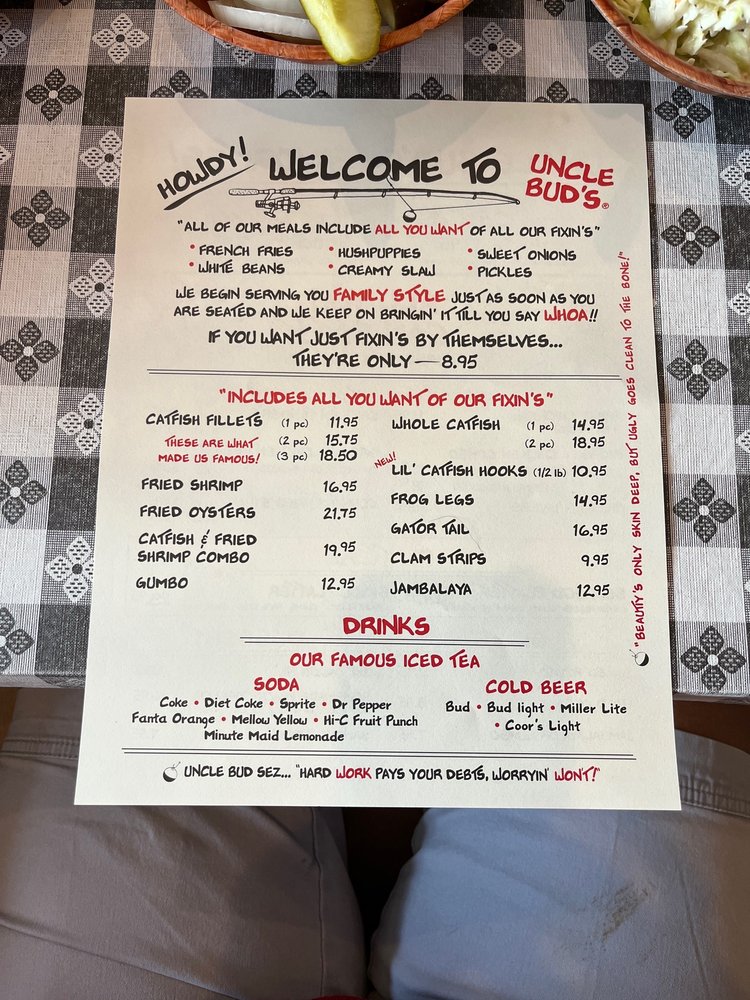 HOWDY! WELCOME TO UNCLE BUD'S®
"ALL OF OUR MEALS INCLUDE ALL YOU WANT OF ALL OUR FIXIN'S"
• FRENCH FRIES • HUSHPUPPIES • SWEET ONIONS
• WHITE BEANS • CREAMY SLAW • PICKLES
WE BEGIN SERVING YOU FAMILY STYLE JUST AS SOON AS YOU
ARE SEATED AND WE KEEP ON BRINGIN' IT TILL YOU SAY WHOA!!
IF YOU WANT JUST FIXIN'S BY THEMSELVES...
THEY'RE ONLY — 8.95
"INCLUDES ALL YOU WANT OF OUR FIXIN'S"
CATFISH FILLETS (1 pc) 11.95
THESE ARE WHAT (2 pc) 15.75
MADE US FAMOUS! (3 pc) 18.50
FRIED SHRIMP 16.95
FRIED OYSTERS 21.75
CATFISH & FRIED
SHRIMP COMBO 19.95
GUMBO 12.95
WHOLE CATFISH (1 pc) 14.95
(2 pc) 18.95
NEW! LIL' CATFISH HOOKS (1/2 lb) 10.95
FROG LEGS 14.95
GATOR TAIL 16.95
CLAM STRIPS 9.95
JAMBALAYA 12.95
"BEAUTY'S ONLY SKIN DEEP, BUT UGLY GOES CLEAN TO THE BONE!"
DRINKS
OUR FAMOUS ICED TEA
SODA
Coke • Diet Coke • Sprite • Dr Pepper
Fanta Orange • Mellow Yellow • Hi-C Fruit Punch
Minute Maid Lemonade
COLD BEER
Bud • Bud light • Miller Lite
• Coor's Light
UNCLE BUD SEZ... "HARD WORK PAYS YOUR DEBTS, WORRYIN' WON'T!"